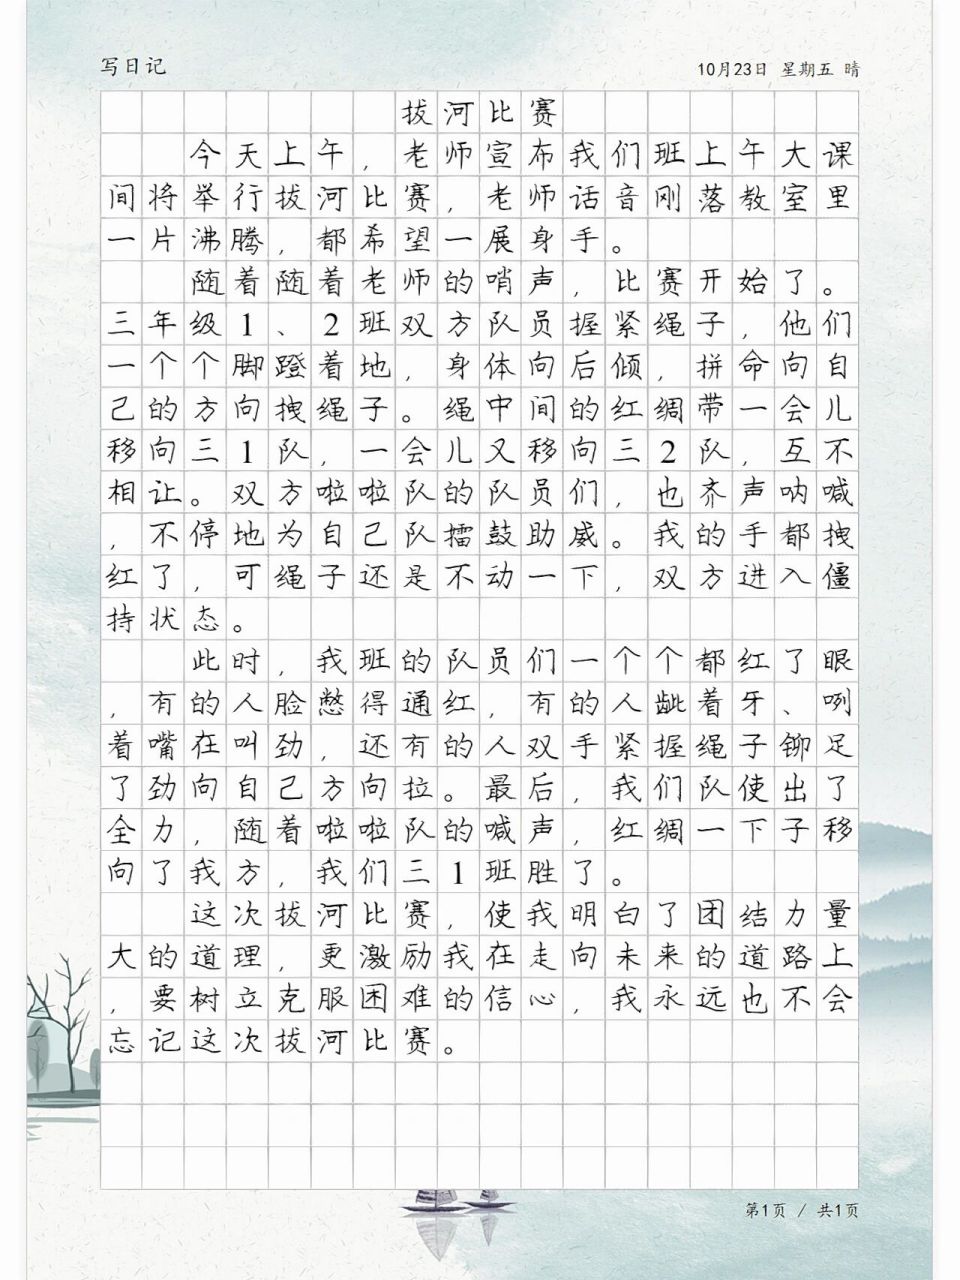 写日记
10月23日 星期五 晴
拔河比赛
今天上午，老师宣布我们班上午大课
间将举行拔河比赛，老师话音刚落教室里
一片沸腾，都希望一展身手。
随着随着老师的哨声，比赛开始了。
三年级1、2班双方队员握紧绳子，他们
一个个脚蹬着地，身体向后倾，拼命向自
己的方向拽绳子。绳中间的红绸带一会儿
移向三1队，一会儿又移向三2队，互不
相让。双方啦啦队的队员们，也齐声呐喊
，不停地为自己队擂鼓助威。我的手都拽
红了，可绳子还是不动一下，双方进入僵
持状态。
此时，我班的队员们一个个都红了眼
，有的人脸憋得通红，有的人龇着牙、咧
着嘴在叫劲，还有的人双手紧握绳子铆足
了劲向自己方向拉。最后，我们队使出了
全力，随着啦啦队的喊声，红绸一下子移
向了我方，我们三1班胜了。
这次拔河比赛，使我明白了团结力量
大的道理，更激励我在走向未来的道路上
，要树立克服困难的信心，我永远也不会
忘记这次拔河比赛。
第1页 / 共1页